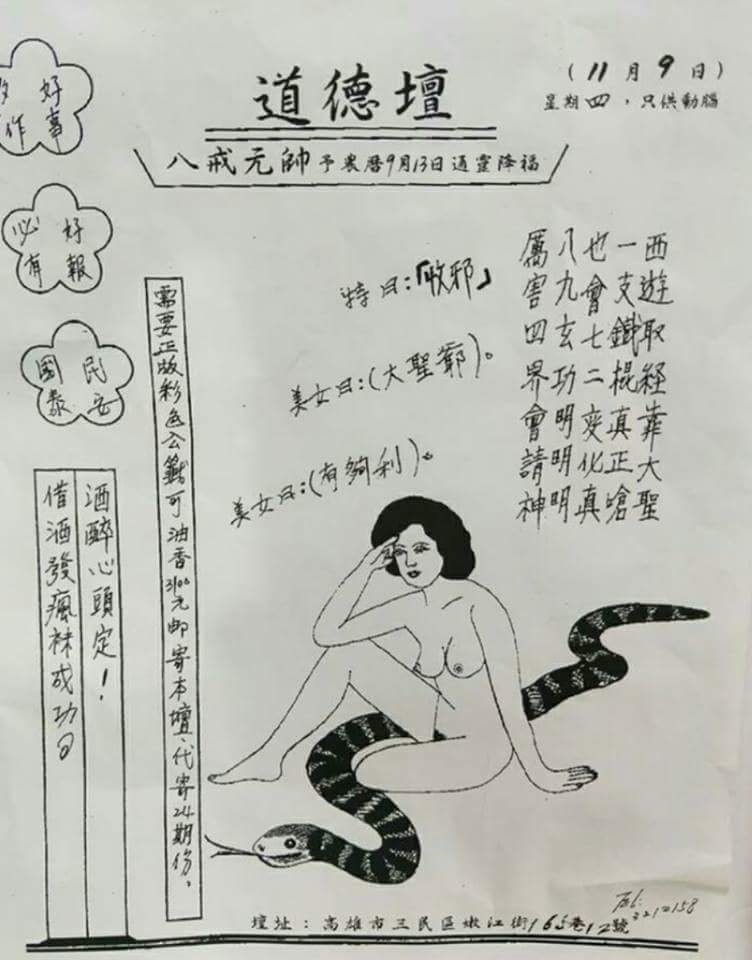 道德壇
(11月9日)
星期四，只供動腦
八戒元帥予農曆9月13日通靈降福
好事
作
好報
必有
民安
國泰
西遊取経靠大聖
一支鐵棍真正嗆
也會七二变化真
八九玄功明明明
厲害四界會請神
特曰：「收邪」
美女曰：(大聖爺)。
美女曰：(有夠利)。
需要正版彩色公籤可油香3100元邮寄本壇、代寄24期份。
酒醉心頭定！
借酒發瘋袜成功曰
壇址：高雄市三民區嫩江街165巷12號
Tel:
3212158